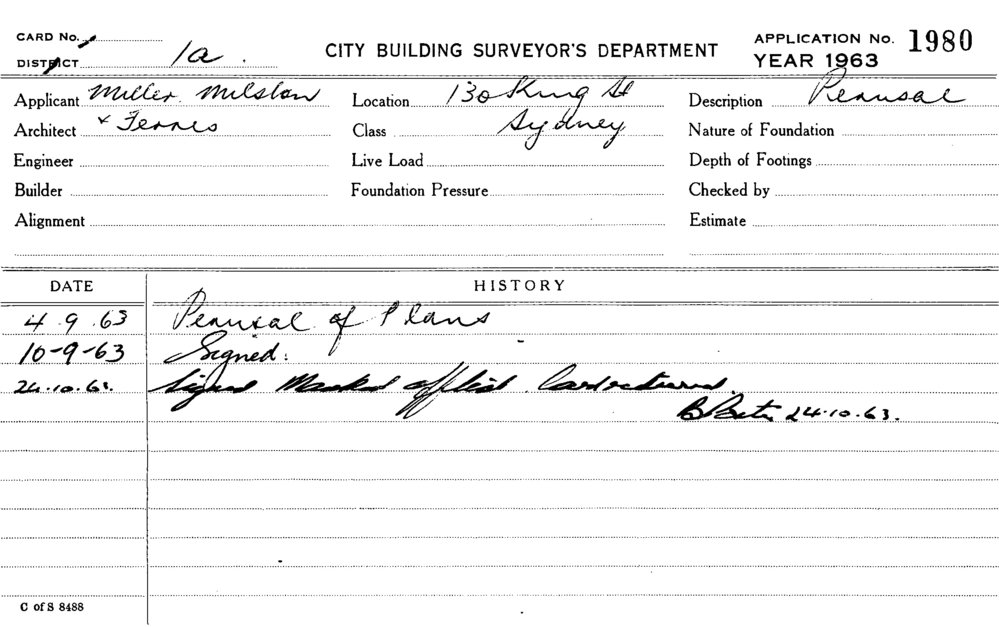 CARD No.
DISTRICT 1a.
CITY BUILDING SURVEYOR'S DEPARTMENT
APPLICATION No. 1980
YEAR 1963
Applicant Miller Milston
Location 130 King St
Description Perusal
Architect & Ferris
Class Sydney
Nature of Foundation
Engineer
Live Load
Depth of Footings
Builder
Foundation Pressure
Checked by
Alignment
Estimate
DATE
HISTORY
4.9.63 Perusal of Plans
10-9-63 Signed:
24.10.63. Signed Marked off list
24.10.63.
C of S 8488